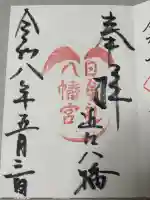 奉拝
近江八幡
八幡宮
令和八年五月三日